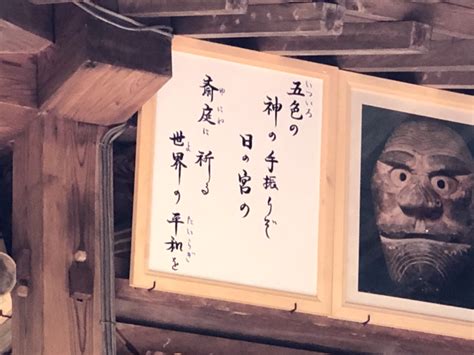 五色の
いついろ
神の手振りぞ
日の宮の
斎庭に祈る
ゆにわ
世界の平和を
よ
たいらぎ